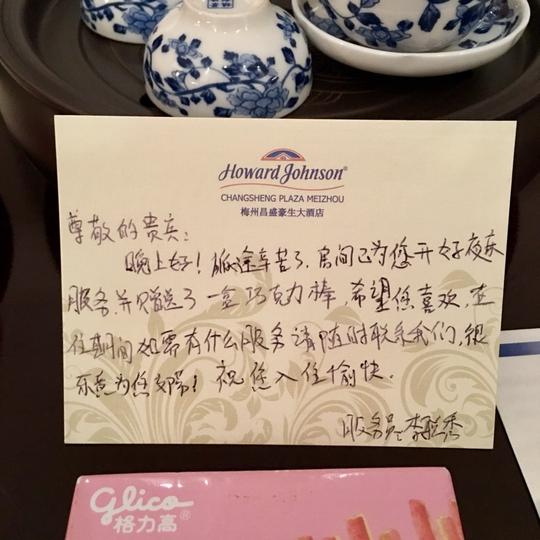 Howard Johnson®
CHANGSHENG PLAZA MEIZHOU
梅州昌盛豪生大酒店
尊敬的贵宾:
晚上好!旅途辛苦了,房间已为您开好夜床
服务,并赠送了一盒巧克力棒,希望您喜欢,在
住期间如需有什么服务请随时联系我们,很
乐意为您效劳!祝您入住愉快.
服务员:李
秀
glico
格力高®